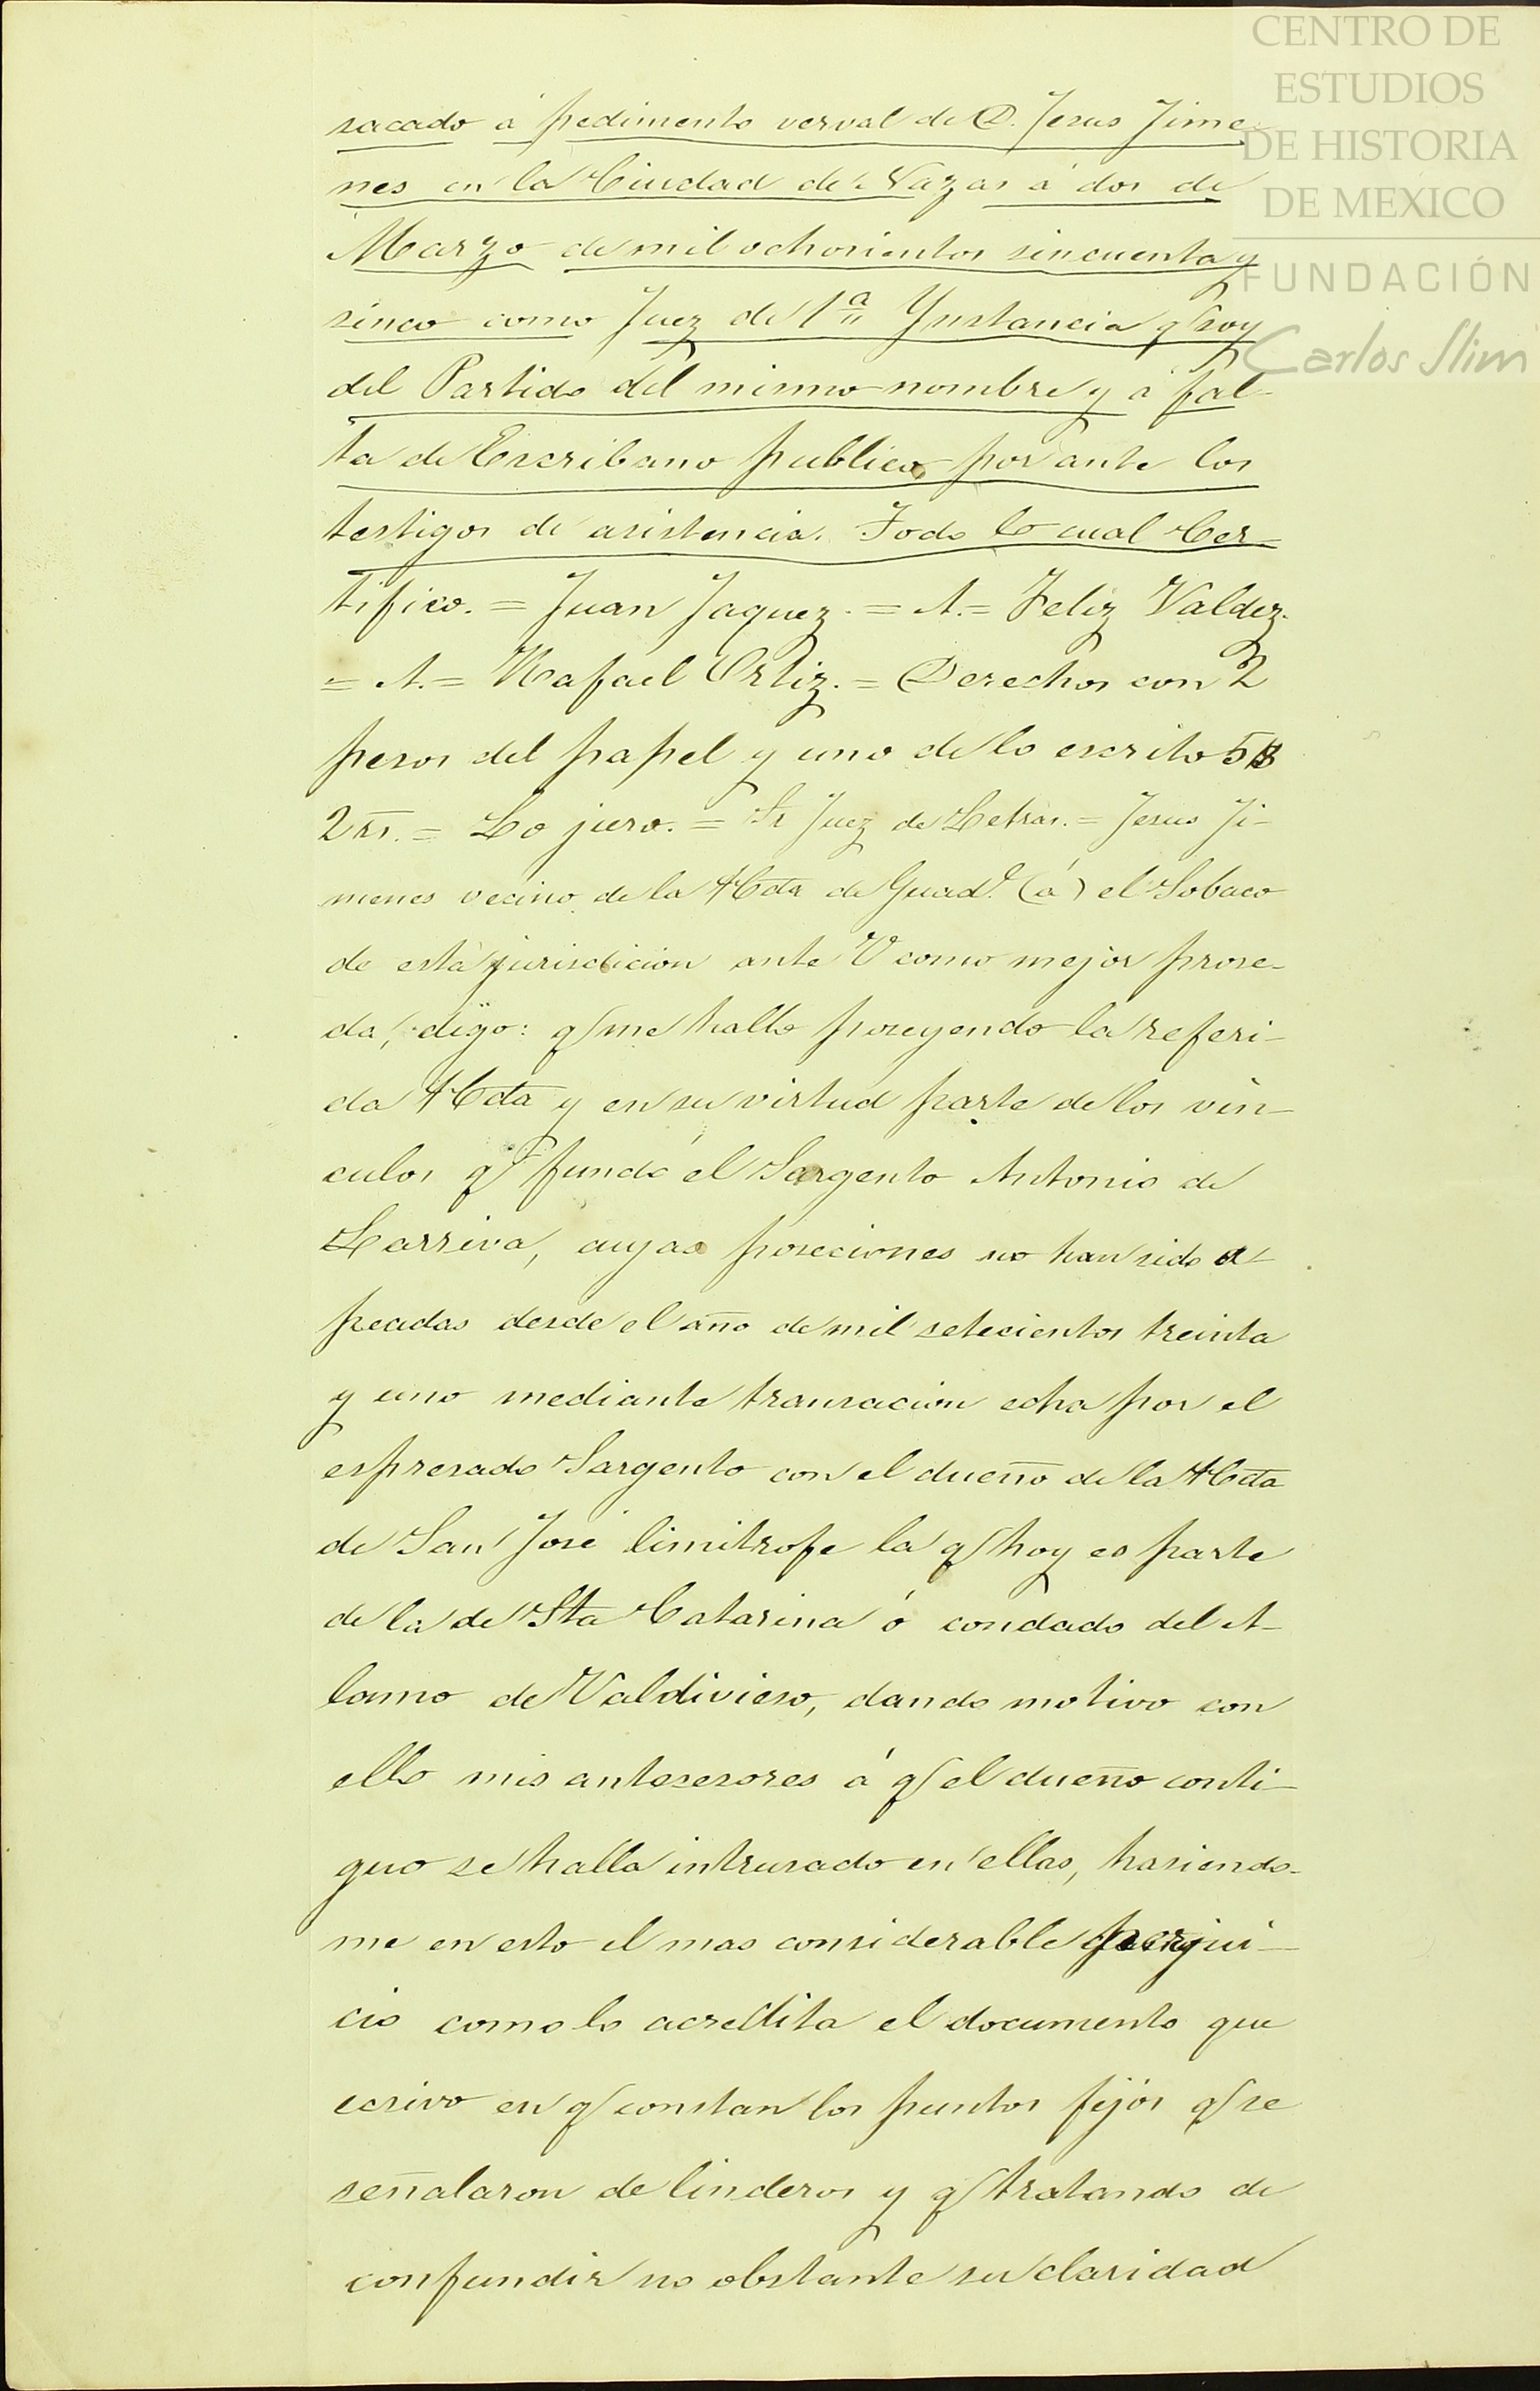 CENTRO DE
ESTUDIOS
DE HISTORIA
DE MEXICO
FUNDACIÓN
Carlos Slim
sacado á pedimento verval de D. Jesus Jime
nes en la Ciudad de Nazas á dos de
Marzo de mil ochosientos sincuenta y
sinco como Juez de 1ª Ynstancia q soy
del Partido del mismo nombre y á fal-
ta de Escribano publico por ante los
testigos de asistencia. Todo lo cual Cer-
tifico. = Juan Jaquez. = A. = Feliz Valdez.
= A. = Rafael Ortiz. = Derechos con 2
pesos del papel y uno de lo escrito 5$
2 rs. = Lo juro. = Sr Juez de Letras. = Jesus Ji-
menes vecino de la Hcda de Guade. (á) el Sobaco
de esta jurisdicion ante V como mejor prose-
da, digo: q me hallo poseyendo la referi-
da Hcda y en su virtud parte de los vin-
culos q fundó el Sargento Antonio de
Larriva, cuyas poseciones no han sido a-
peadas desde el año de mil setecientos treinta
y uno mediante transacion echa por el
espresado Sargento con el dueño de la Hcda
de San José limitrofe la q hoy es parte
de la de Sta Catarina ó condado del A-
lamo de Valdivieso, dando motivo con
ello mis antesesores á q el dueño conti-
guo se halla intrusado en ellas, hasiendo-
me en esto el mas considerable perjui-
cio como lo acredita el documento que
ecsivo en q constan los puntos fijos q se
señalaron de linderos y q tratando de
confundir no obstante su claridad